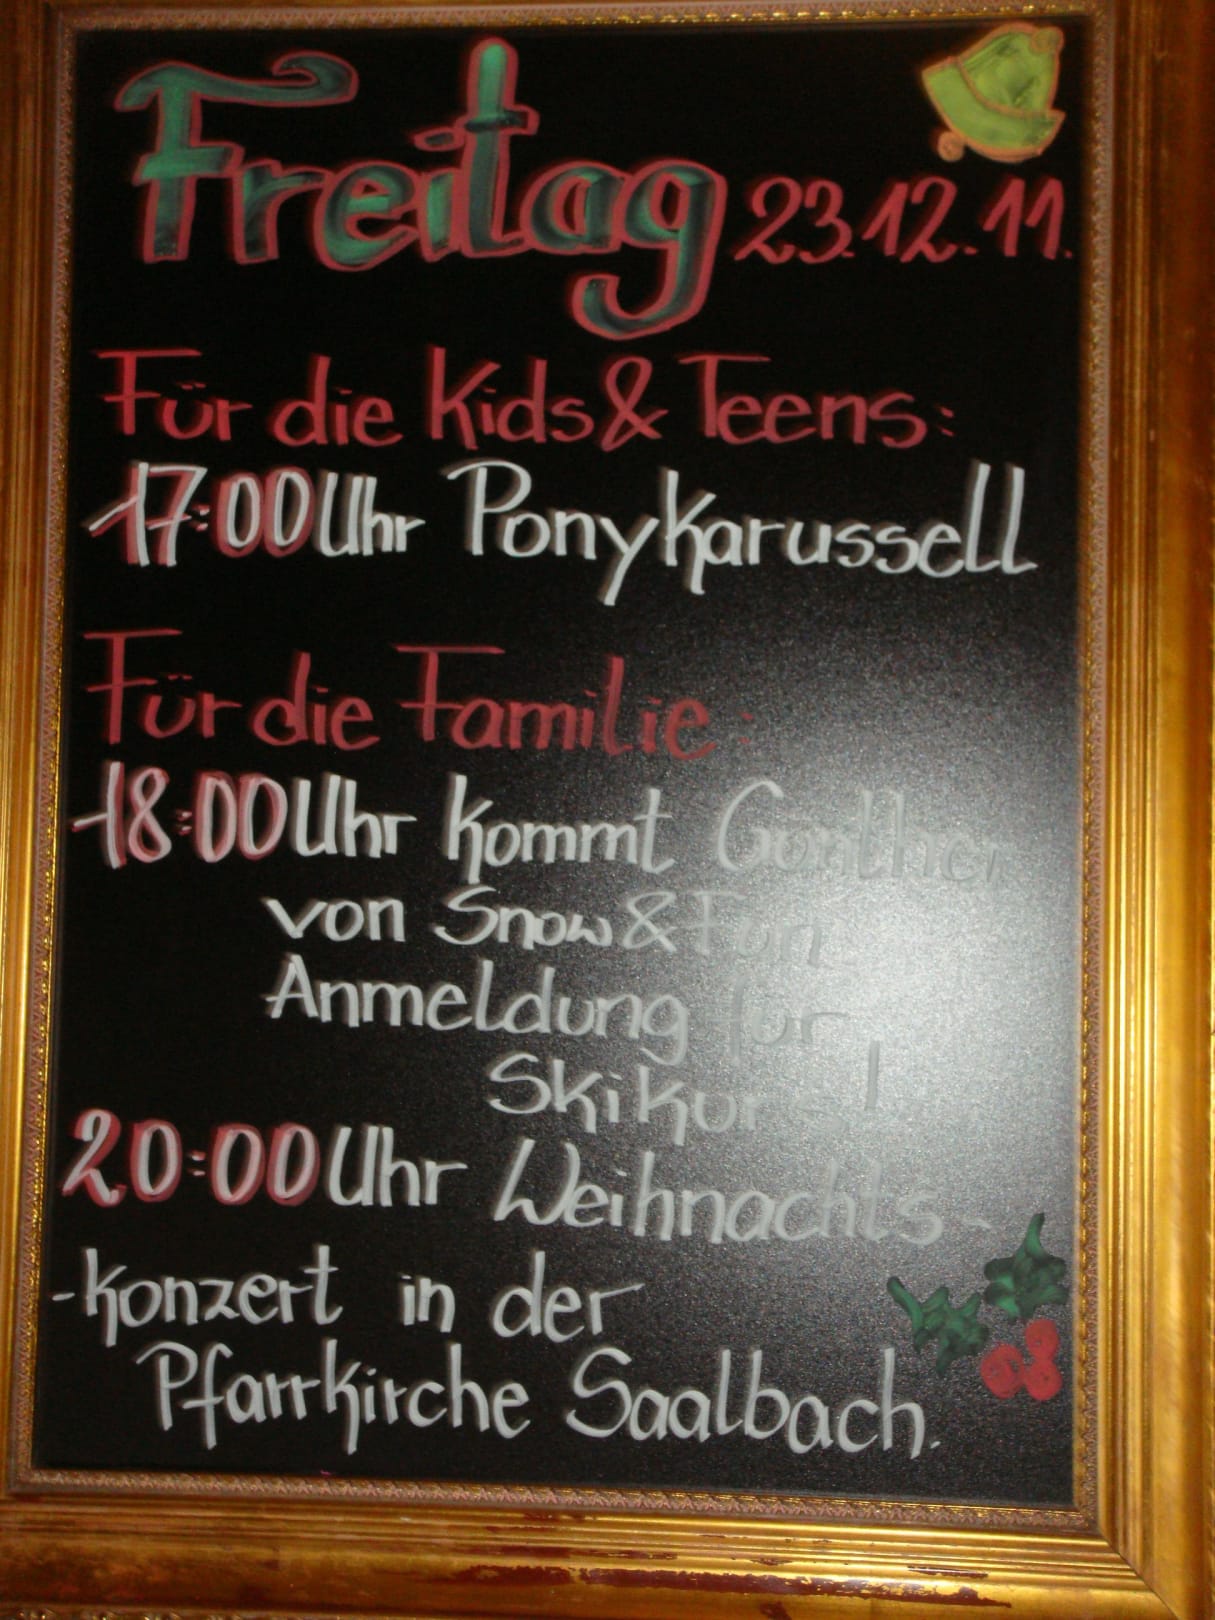 Freitag 23.12.11.
Für die Kids & Teens:
17:00 Uhr Ponykarussell
Für die Familie:
18:00 Uhr kommt Günther
von Snow & Fun
Anmeldung für
Skikurs!
20:00 Uhr Weihnachts-
-konzert in der
Pfarrkirche Saalbach.